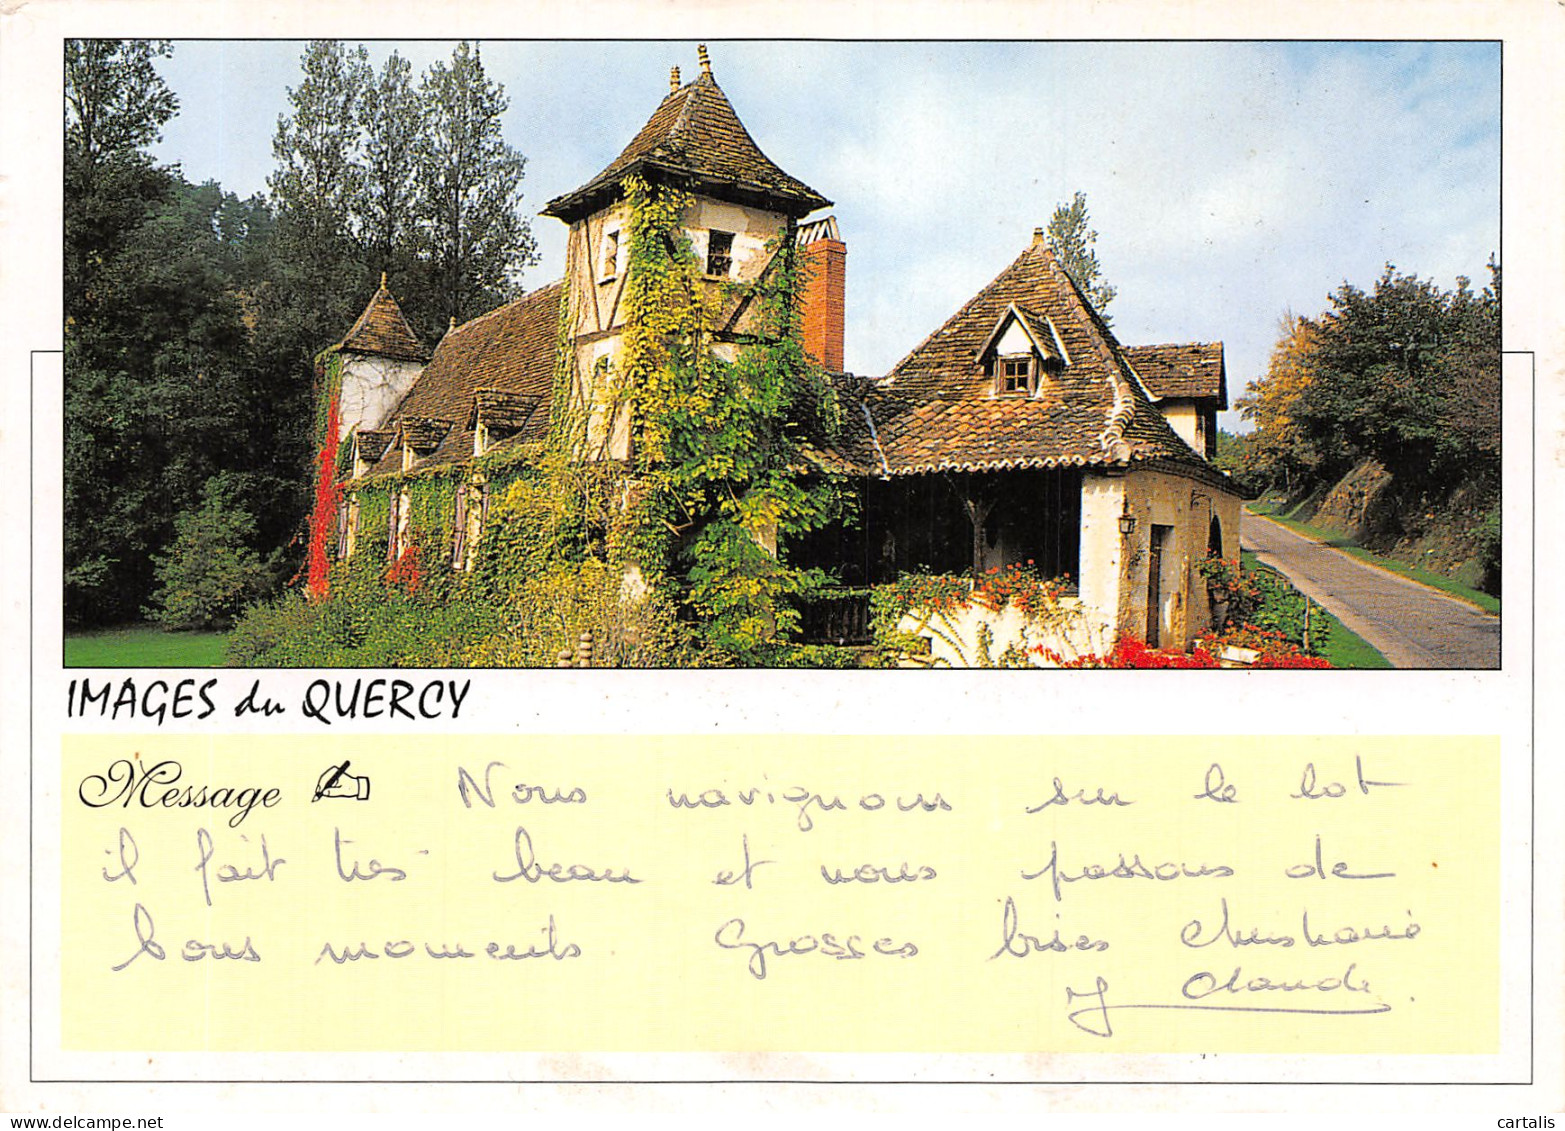 IMAGES du QUERCY
Message Nous navignons sur le lot
il fait très beau et nous passons de
bons moments. Grosses bises Christiane
J Claude.
delcampe.net
cartalis